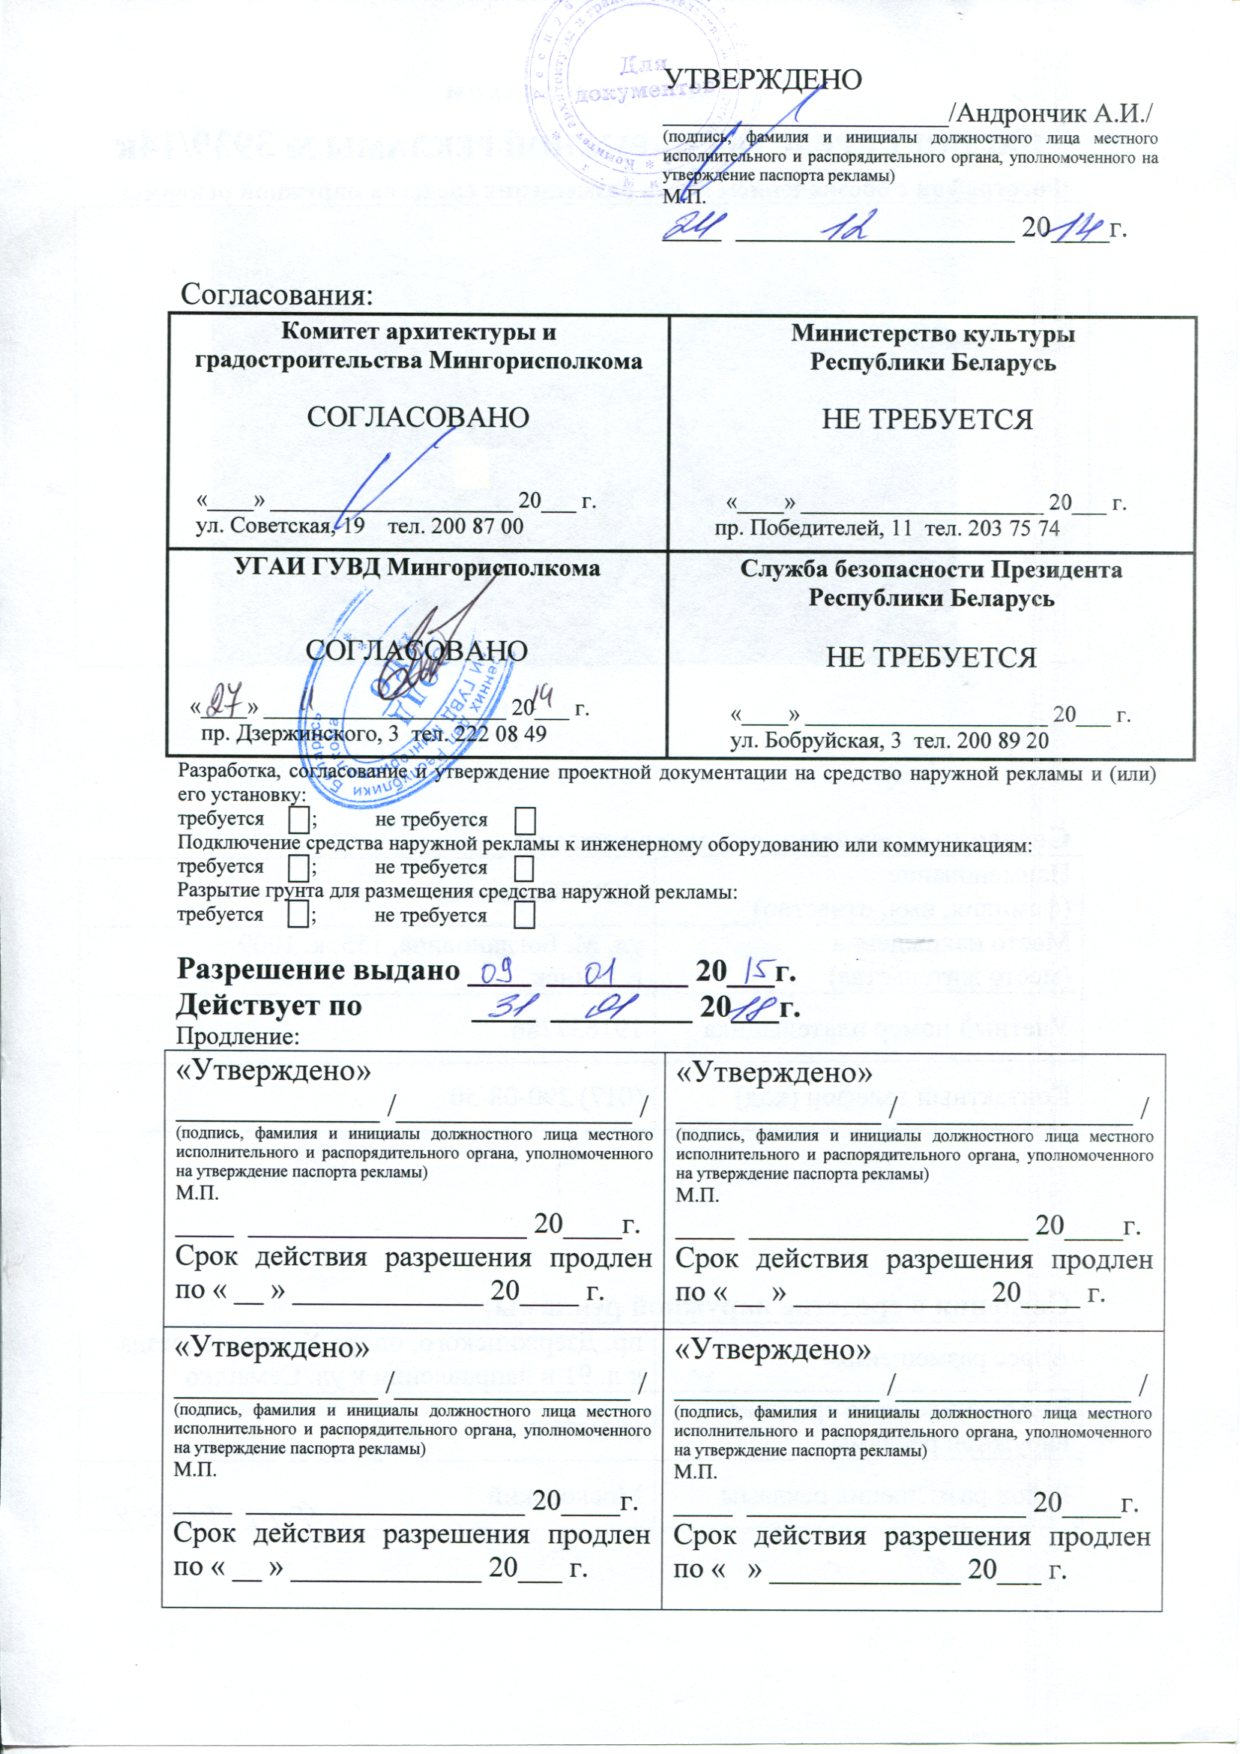 Для
документов
УТВЕРЖДЕНО
____________________/Андрончик А.И./
(подпись, фамилия и инициалы должностного лица местного
исполнительного и распорядительного органа, уполномоченного на
утверждение паспорта рекламы)
М.П.
24 12 2014г.
Согласования:
Комитет архитектуры и
градостроительства Мингорисполкома
СОГЛАСОВАНО
«____» ____________________ 20___ г.
ул. Советская, 19 тел. 200 87 00
Министерство культуры
Республики Беларусь
НЕ ТРЕБУЕТСЯ
«____» ____________________ 20___ г.
пр. Победителей, 11 тел. 203 75 74
УГАИ ГУВД Мингорисполкома
СОГЛАСОВАНО
«27» 11 2014 г.
пр. Дзержинского, 3 тел. 222 08 49
Служба безопасности Президента
Республики Беларусь
НЕ ТРЕБУЕТСЯ
«____» ____________________ 20___ г.
ул. Бобруйская, 3 тел. 200 89 20
Разработка, согласование и утверждение проектной документации на средство наружной рекламы и (или)
его установку:
требуется ; не требуется
Подключение средства наружной рекламы к инженерному оборудованию или коммуникациям:
требуется ; не требуется
Разрытие грунта для размещения средства наружной рекламы:
требуется ; не требуется
Разрешение выдано 09 01 2015г.
Действует по 31 01 2018 г.
Продление:
«Утверждено»
______________ /________________ /
(подпись, фамилия и инициалы должностного лица местного
исполнительного и распорядительного органа, уполномоченного
на утверждение паспорта рекламы)
М.П.
____ ___________________ 20____г.
Срок действия разрешения продлен
по « __ » _____________ 20____ г.
«Утверждено»
______________ /________________ /
(подпись, фамилия и инициалы должностного лица местного
исполнительного и распорядительного органа, уполномоченного
на утверждение паспорта рекламы)
М.П.
____ ___________________ 20____г.
Срок действия разрешения продлен
по « __ » _____________ 20____ г.
«Утверждено»
______________ /________________ /
(подпись, фамилия и инициалы должностного лица местного
исполнительного и распорядительного органа, уполномоченного
на утверждение паспорта рекламы)
М.П.
____ ___________________ 20____г.
Срок действия разрешения продлен
по « __ » _____________ 20___ г.
«Утверждено»
________ /________________ /
(подпись, фамилия и инициалы должностного лица местного
исполнительного и распорядительного органа, уполномоченного
на утверждение паспорта рекламы)
М.П.
____ ___________________ 20____г.
Срок действия разрешения продлен
по « » _____________ 20___ г.